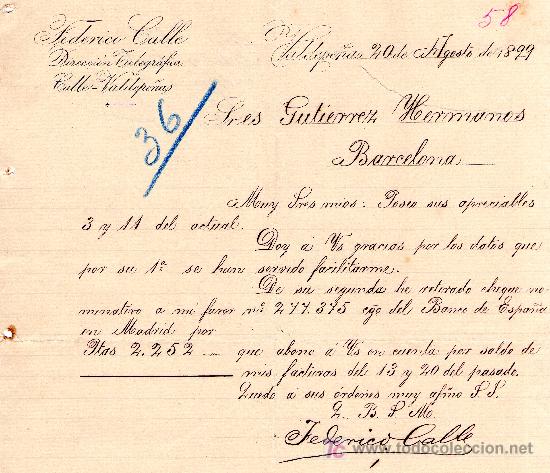 58
Federico Calle
Dirección Telegráfica
Calle-Valdepeñas
Valdepeñas 20 de Agosto de 1899
36
Sres Gutierrez Hermanos
Barcelona
Muy Sres mios: Poseo sus apreciables
3 y 11 del actual.
Doy á Vs gracias por los datos que
por su 1ª se han servido facilitarme.
De su segunda he retirado cheque no-
minativo a mi favor nº 277.375 cgo del Banco de España
en Madrid por
Ptas 2.252 que abono á Vs en cuenta por saldo de
mis facturas del 13 y 20 del pasado.
Quedo á sus órdenes muy afmo S.S.
Q. B. S. M.
Federico Calle
todocoleccion.net